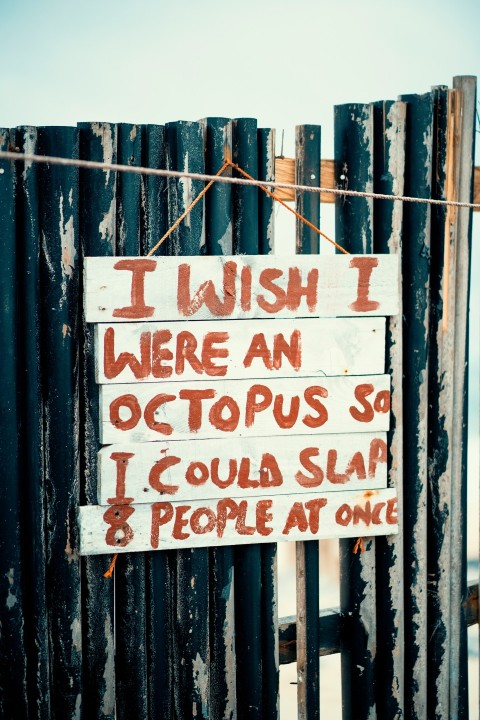 I WISH I
WERE AN
OCTOPUS SO
I COULD SLAP
8 PEOPLE AT ONCE